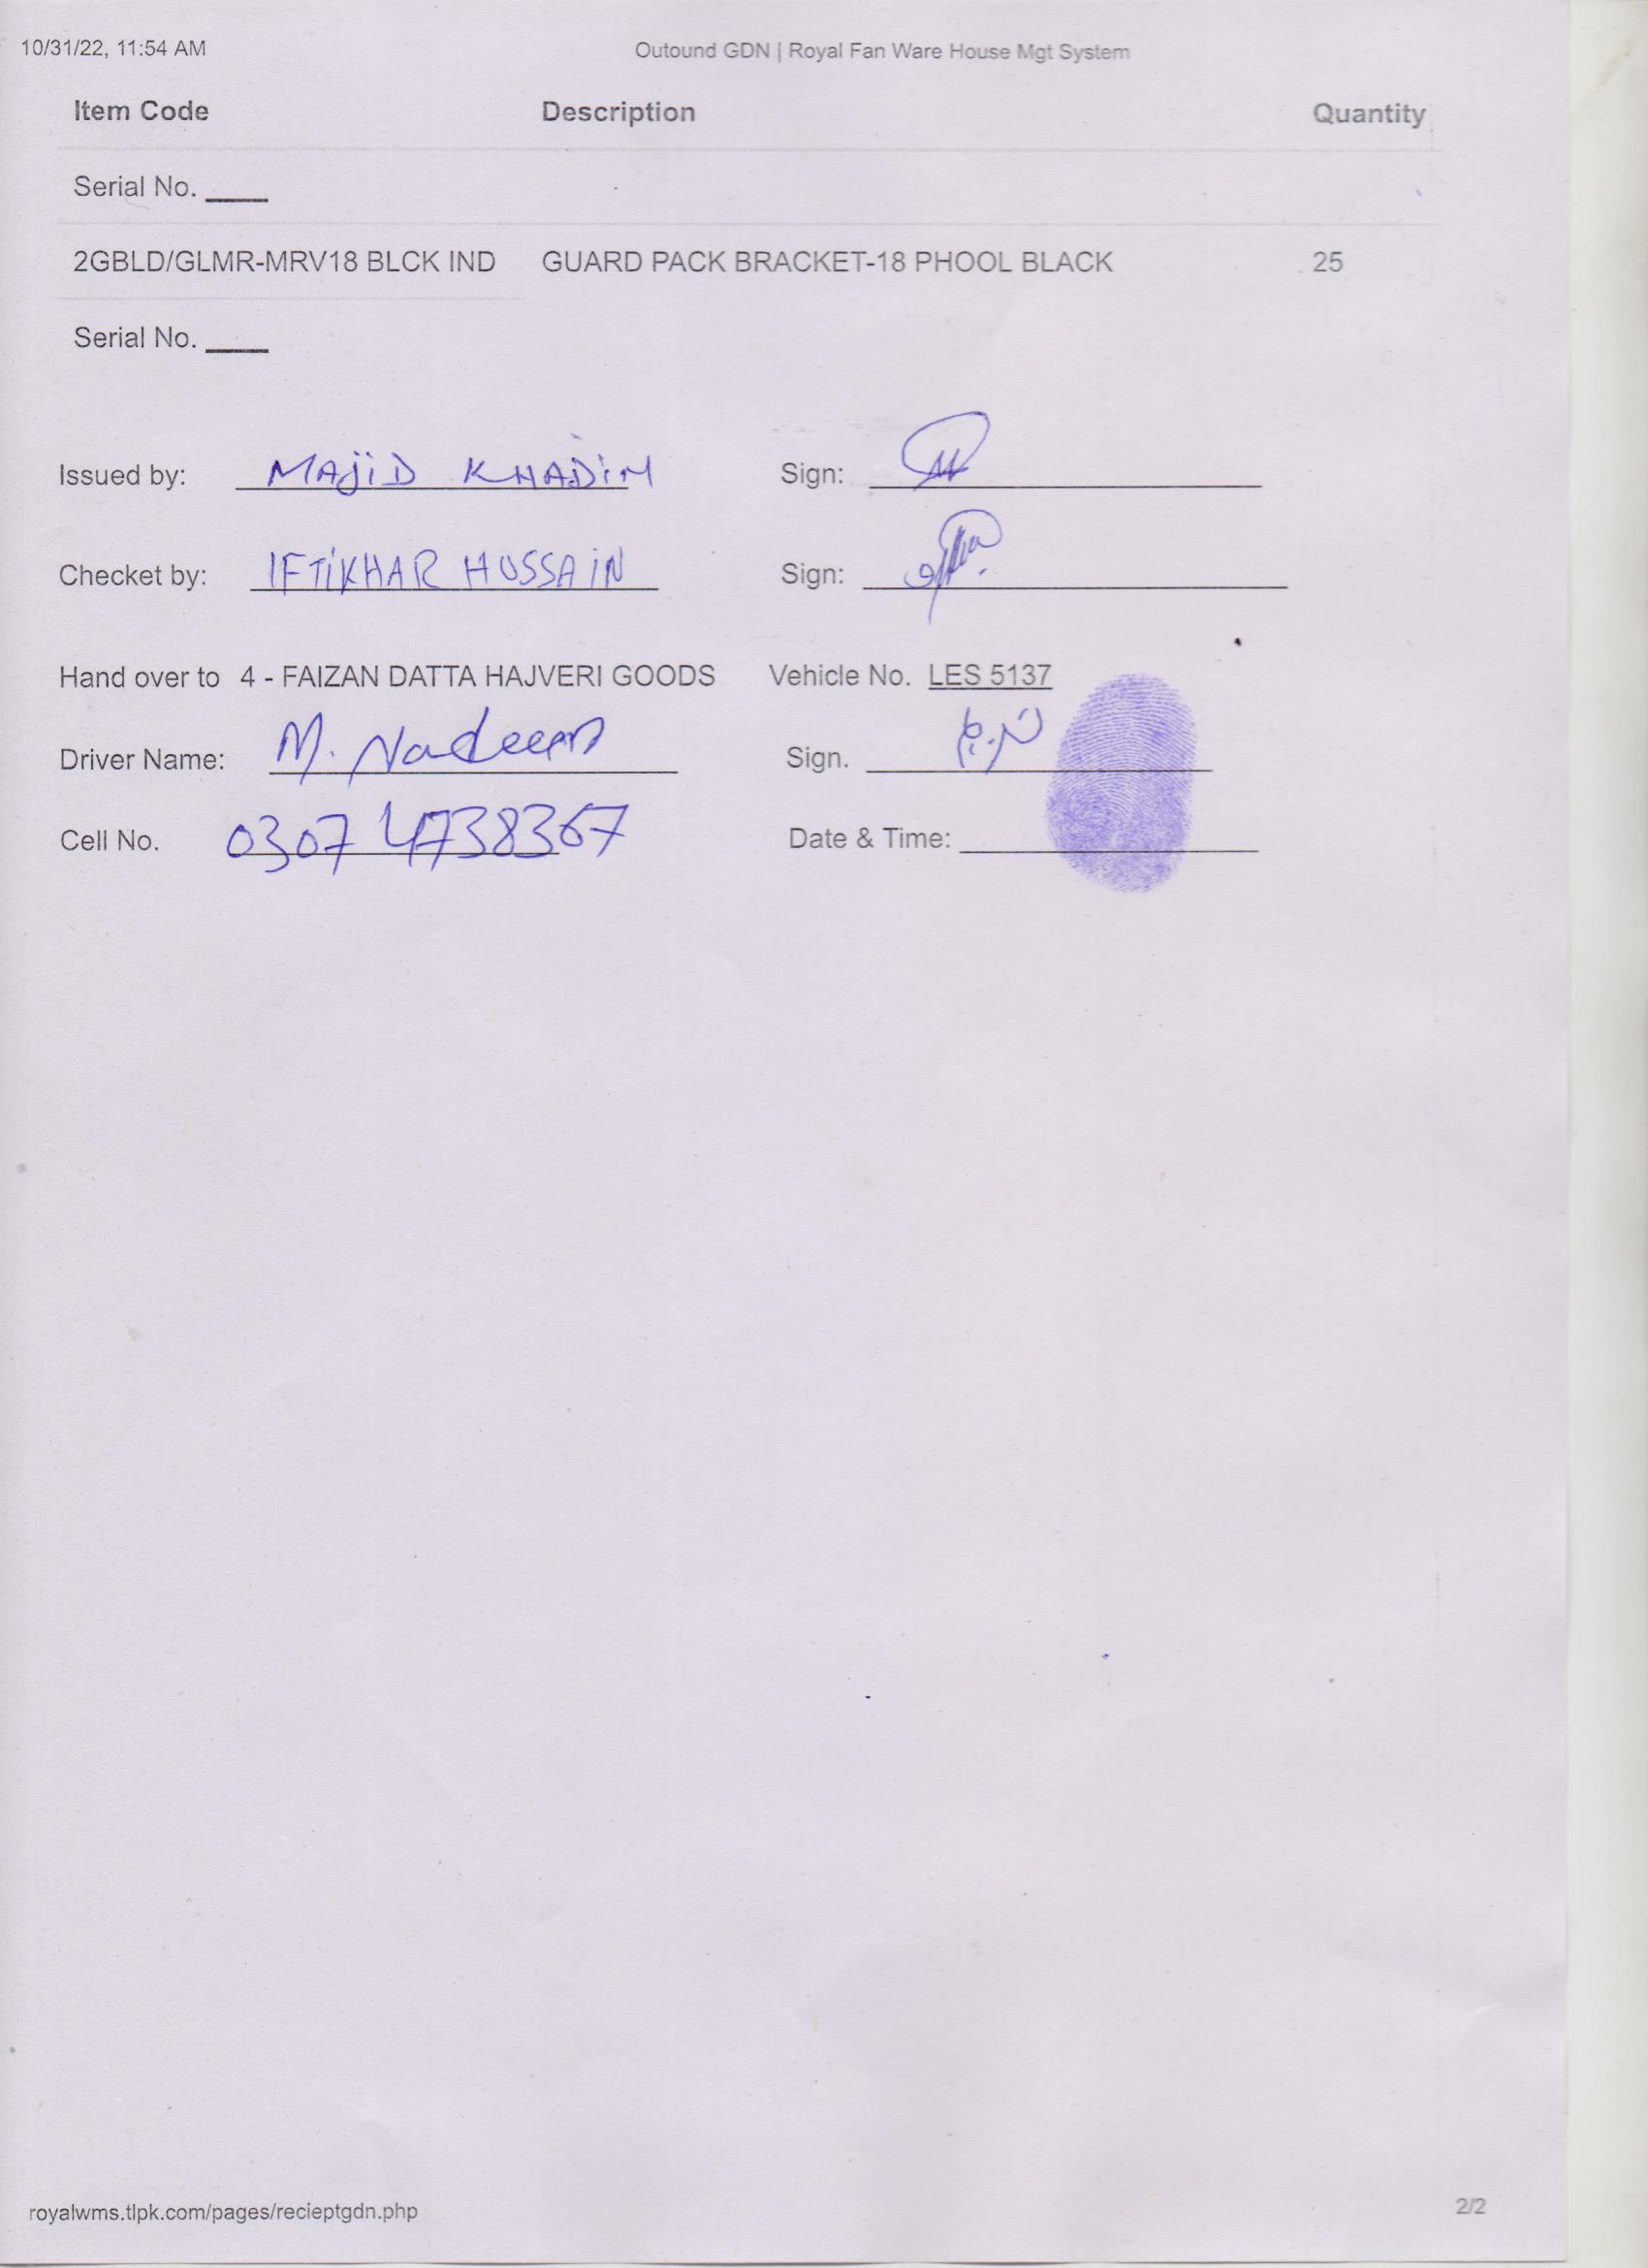 10/31/22, 11:54 AM Outound GDN | Royal Fan Ware House Mgt System
Item Code Description Quantity
Serial No. ____
2GBLD/GLMR-MRV18 BLCK IND GUARD PACK BRACKET-18 PHOOL BLACK 25
Serial No. ____
Issued by: MAJID KHADIM Sign:
Checket by: IFTIKHAR HUSSAIN Sign:
Hand over to 4 - FAIZAN DATTA HAJVERI GOODS Vehicle No. LES 5137
Driver Name: M. Nadeem Sign. ندیم
Cell No. 0307 4738367 Date & Time:
royalwms.tlpk.com/pages/recieptgdn.php 2/2